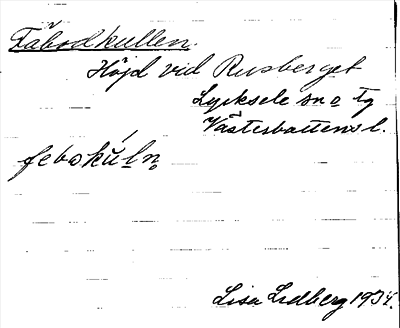 Fäbodkullen.
Höjd vid Rusberget
Lycksele sn o tg
Västerbottens l.
febokúln
Lisa Lidberg 1934.